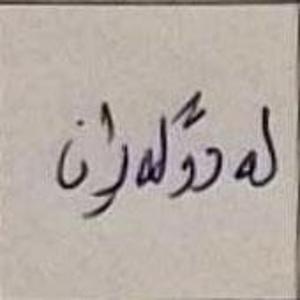 لە دوگەران